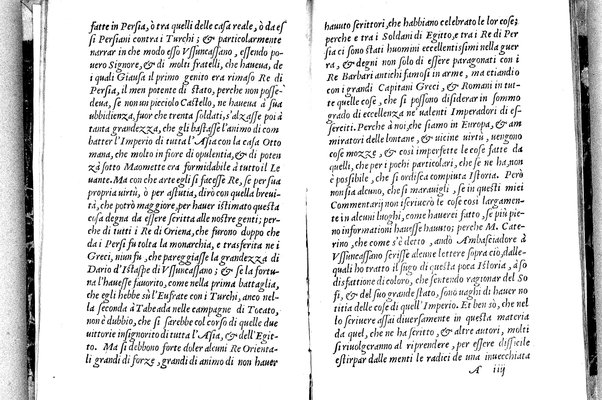 fatte in Persia, ò tra quelli della casa reale, ò da es
si Persiani contra i Turchi; & particolarmente
narrar in che modo esso Vssuncassano, essendo po
uero Signore, & di molti fratelli, che haueua, de
i quali Giausa il primo genito era rimaso Re di
Persia, il men potente di stato, perche non posse-
deua, se non un picciolo Castello, ne haueua à sua
ubbidienza, fuor che trenta soldati, s'alzasse poi à
tanta grandezza, che gli bastasse l'animo di com
batter l'Imperio di tutta l'Asia con la casa Otto
mana, che molto in fiore di opulentia, & di poten
za sotto Maomette era formidabile à tutto il Le
uante. Ma con che arte egli si facesse Re, se per sua
propria virtù, ò per astutia, dirò con quella breui-
tà, che potrò maggiore, per hauer istimato questa
cosa degna da essere scritta alle nostre genti; per-
che di tutti i Re di Oriena, che furono doppo che
da i Persi fu tolta la monarchia, e trasferita ne i
Greci, niun fu, che pareggiasse la grandezza di
Dario d'Istaspe & di Vssuncassano; & se la fortu-
na l'hauesse fauorito, come nella prima battaglia,
che egli hebbe sù l'Eufrate con i Turchi, anco nel-
la seconda à Tabeada nelle campagne di Tocato,
non è dubbio, che si sarebbe col corso di quelle due
uittorie insignorito di tutta l'Asia, & dell'Egit-
to. Ma si debbono forte doler alcuni Re Orienta-
li grandi di forze, grandi di animo di non hauer
hauuto scrittori, che habbiano celebrato le lor cose;
perche e tra i Soldani di Egitto, e tra i Re di Per
sia ci sono stati huomini eccellentissimi nella guer
ra, & degni non solo di essere paragonati con i
Re Barbari antichi famosi in arme, ma etiandio
con i grandi Capitani Greci, & Romani in tut-
te quelle cose, che si possono disiderar in sommo
grado di eccellenza ne' ualenti Imperadori di es-
serciti. Perche à noi, che siamo in Europa, & am
miratori delle lontane, & uicine uirtù, uengono
cose mozze, & così imperfette le cose fatte da
quelli, che per i pochi particolari, che se ne ha, non
è possibile, che si ordisca compiuta Istoria. Però
non sia alcuno, si marauigli, se in questi miei
Commentarij non iscriuerò le cose così largamen-
te in alcuni luoghi, come hauerei fatto, se più pie-
no informationi hauesse hauuto; perche M. Cate-
rino, che come s'è detto, andò Ambasciadore à
Vssuncassano scrisse alcune lettere sopra ciò, dalle-
quali ho tratto il sugo di questa poca Istoria, à so-
disfattione di coloro, che sentendo ragionar del So
fi, & del suo grande stato, sono uaghi di hauer no
titia delle cose di quell'Imperio. Et ben sò, che nel
lo scriuere assai diuersamente in questa materia
da quel, che ne ha scritto, & altre autori, molti
si riuolgeranno al riprendere, per essere difficile
estirpar dalle menti le radici de una inuecchiata
A iiij